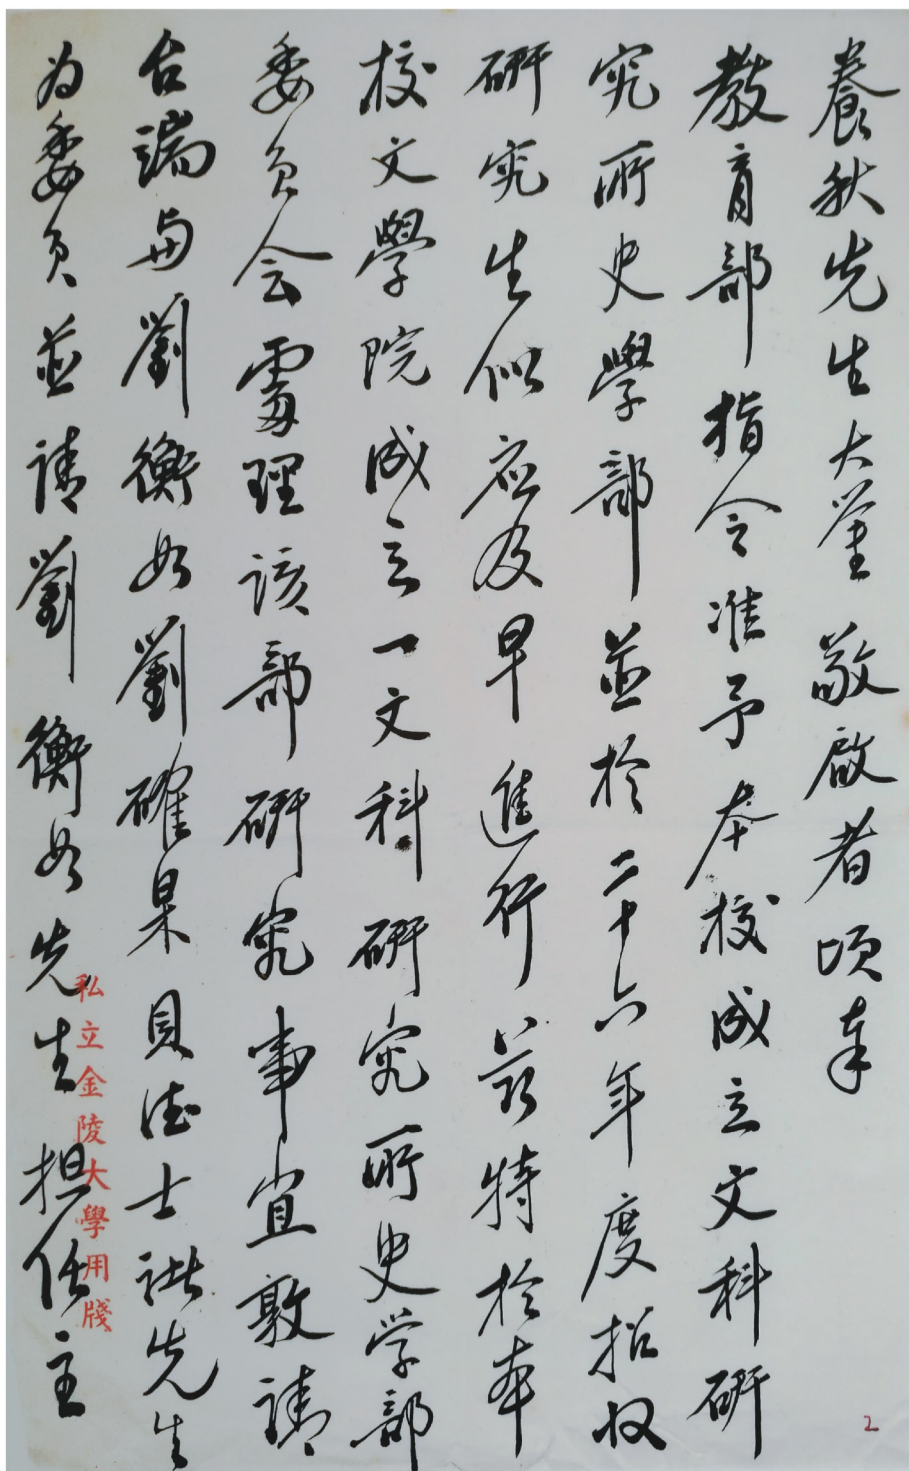 養秋先生大鑒敬啟者頃奉
教育部指令准予本校成立文科研
究所史學部並於二十六年度招收
研究生似应及早進行茲特於本
校文學院成立一文科研究所史学部
委员会處理該部研究事宜敦請
台端與劉衡如劉確杲貝德士諸先生
为委员並請劉衡如先生担任主
私立金陵大學用牋
2